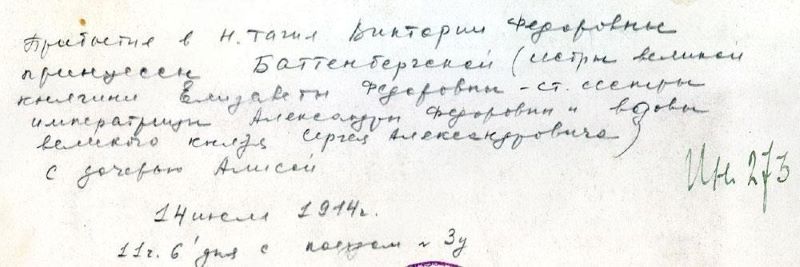 Прибытие в Н. Тагил Виктории Федоровны
принцессы Баттенбергской (сестры великой
княгини Елизаветы Федоровны - ст. сестры
императрицы Александры Федоровны и вдовы
великого князя Сергея Александровича)
с дочерью Алисой
Ин. 273
14 июля 1914г.
11г. 6' дня с поездом № 3у